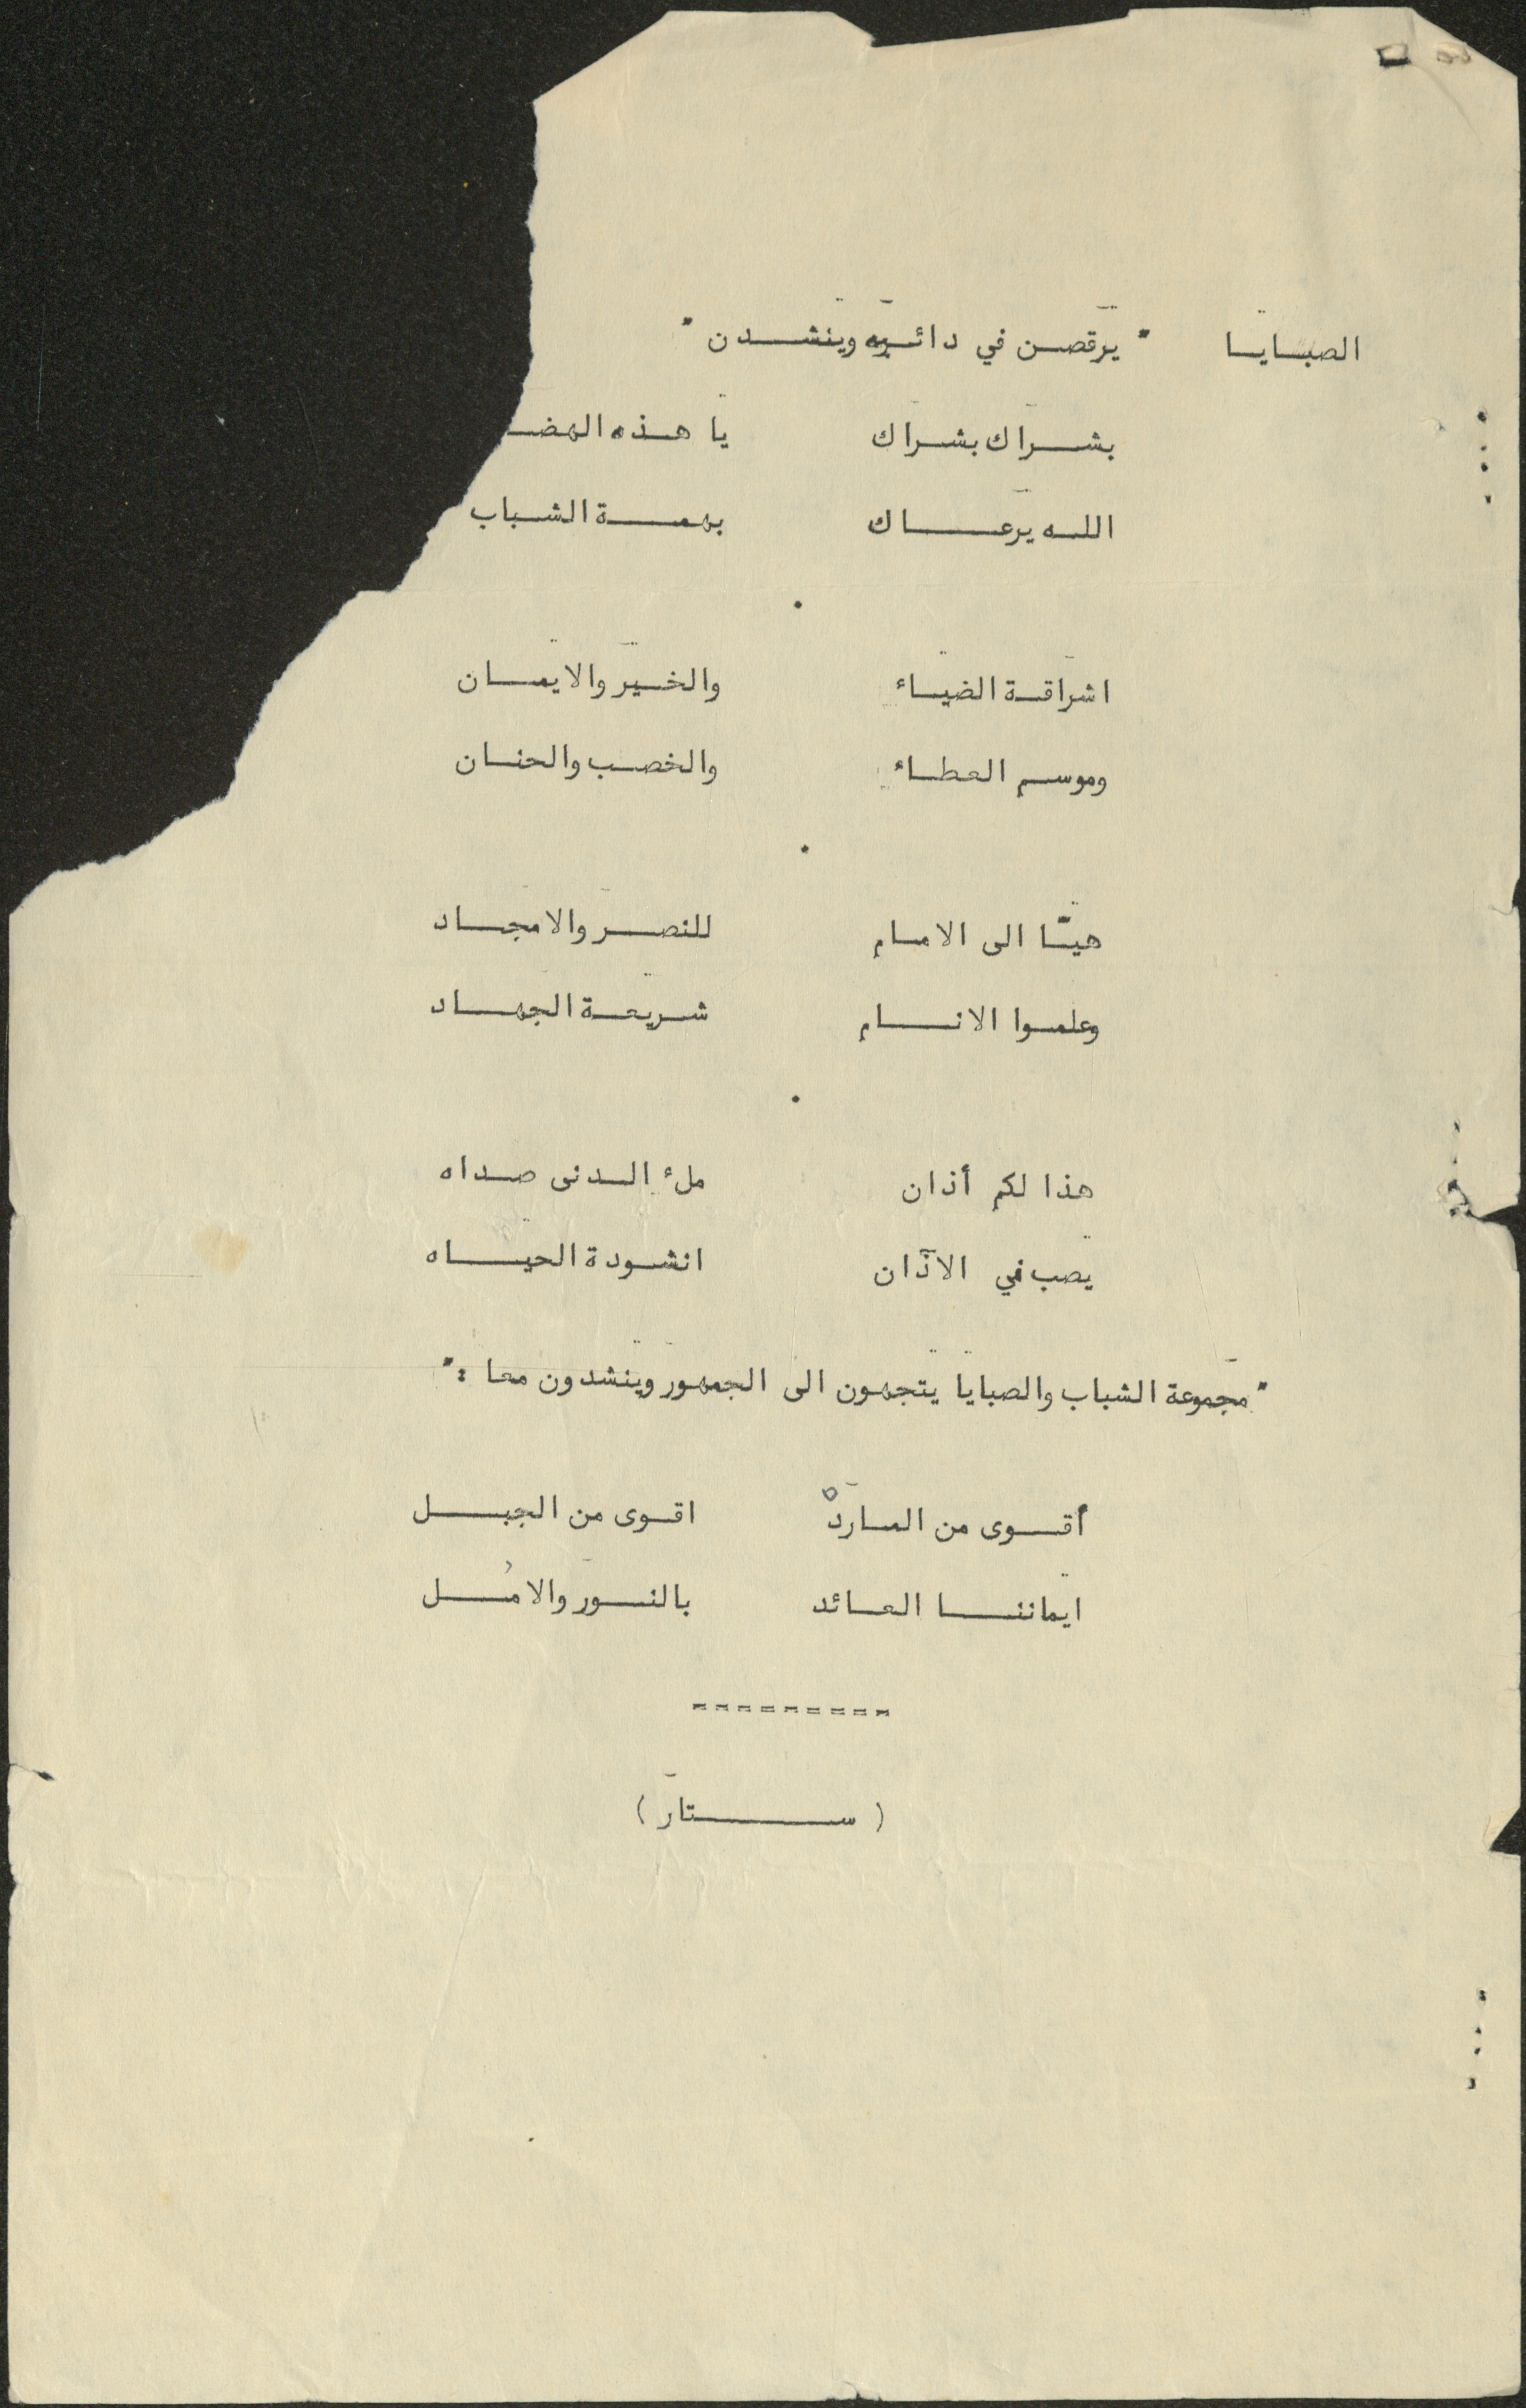 الصبايا " يرقصن في دائرة وينشدن "
بشراك بشراك يا هذه الهضـ
الله يرعاك بهمة الشباب
.
اشراقة الضياء والخير والايمان
وموسم العطاء والخصب والحنان
.
هيّا الى الامام للنصر والامجاد
وعلموا الانام شريعة الجهاد
.
هذا لكم أذان ملء الدنى صداه
يصب في الآذان انشودة الحياه
" مجموعة الشباب والصبايا يتجهون الى الجمهور وينشدون معا : "
أقوى من الماردْ اقوى من الجبل
ايماننا العائد بالنور والامل
=========
( ستار )